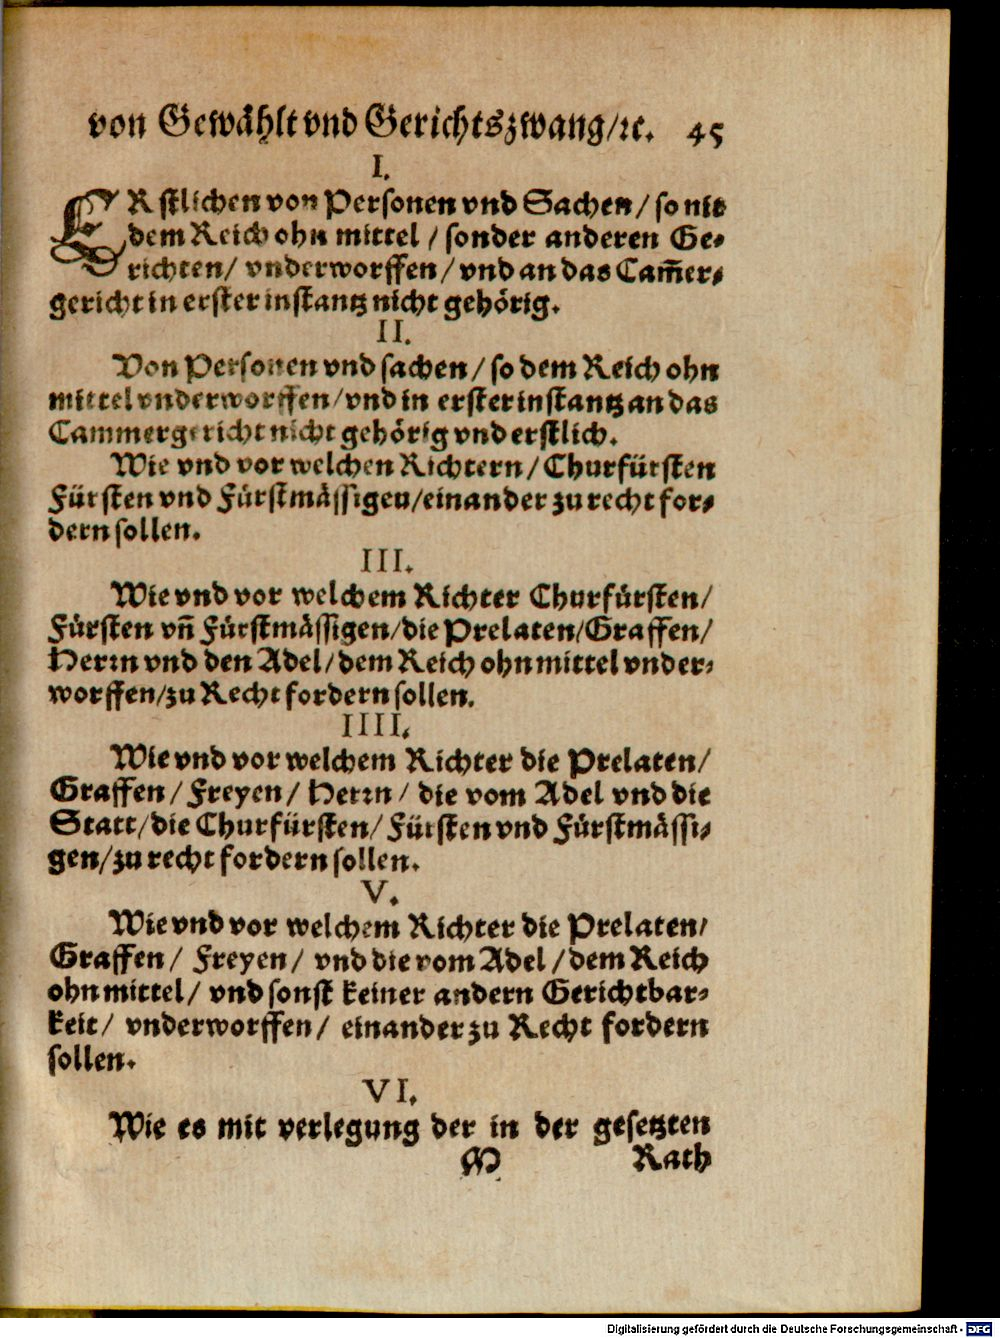 von Gewählt vnd Gerichtszwang/ꝛc. 45
I.
ERstlichen von Personen vnd Sachen / so nit
dem Reich ohn mittel / sonder anderen Ge⸗
richten / vnderworffen / vnd an das Cam̃er⸗
gericht in erster instantz nicht gehörig.
II.
Von Personen vnd sachen / so dem Reich ohn
mittel vnderworffen / vnd in erster instantz an das
Cammergericht nicht gehörig vnd erstlich.
Wie vnd vor welchen Richtern / Churfürsten
Fürsten vnd Fürstmässigen / einander zu recht for⸗
dern sollen.
III.
Wie vnd vor welchem Richter Churfürsten /
Fürsten vn̄ Fürstmässigen / die Prelaten / Graffen /
Herrn vnd den Adel / dem Reich ohn mittel vnder⸗
worffen / zu Recht fordern sollen.
IIII.
Wie vnd vor welchem Richter die Prelaten /
Graffen / Freyen / Herrn / die vom Adel vnd die
Statt / die Churfürsten / Fürsten vnd Fürstmässi⸗
gen / zu recht fordern sollen.
V.
Wie vnd vor welchem Richter die Prelaten /
Graffen / Freyen / vnd die vom Adel / dem Reich
ohn mittel / vnd sonst keiner andern Gerichtbar⸗
keit / vnderworffen / einander zu Recht fordern
sollen.
VI.
Wie es mit verlegung der in der gesetzten
M Rath
Digitalisierung gefördert durch die Deutsche Forschungsgemeinschaft - DFG